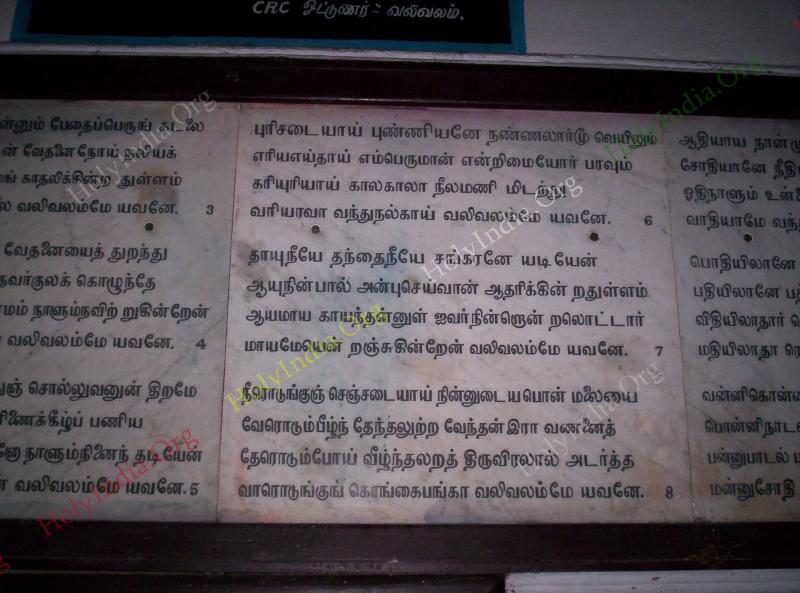 CRC ஓட்டுணர் :- வலிவலம்.
ன்னும் பேதைப்பெருங் கடலை
ன் வேதனை நோய் நலியக்
காதலிக்கின்ற துள்ளம்
வலிவலம்மே யவனே. 3
வேதனையைத் துறந்து
தவர்குலக் கொழுந்தே
நாளும்நவிற் றுகின்றேன்
வலிவலம்மே யவனே. 4
சொல்லுவனுன் திறமே
ணைக்கீழ்ப் பணிய
நாளும்நினைந் தடியேன்
வலிவலம்மே யவனே. 5
புரிசடையாய் புண்ணியனே நண்ணலார்மூ வெயிலும்
எரியஎய்தாய் எம்பெருமான் என்றிமையோர் பரவும்
கரியுரியாய் காலகாலா நீலமணி மிடற்று
வரியரவா வந்துநல்காய் வலிவலம்மே யவனே. 6
தாயுநீயே தந்தைநீயே சங்கரனே யடியேன்
ஆயுநின்பால் அன்புசெய்வான் ஆதரிக்கின் றதுள்ளம்
ஆயமாய காயந்தன்னுள் ஐவர்நின்றொன் றலொட்டார்
மாயமேயென் றஞ்சுகின்றேன் வலிவலம்மே யவனே. 7
நீரொடுங்குஞ் செஞ்சடையாய் நின்னுடையபொன் மலையை
வேரொடும்பீழ்ந் தேந்தலுற்ற வேந்தன்இரா வணனைத்
தேரொடும்போய் வீழ்ந்தலறத் திருவிரலால் அடர்த்த
வாரொடுங்குங் கொங்கைபங்கா வலிவலம்மே யவனே. 8
ஆதியாய நான்மு
சோதியானே நீதி
ஓதிநாளும் உன்னை
வாதியாமே வந்
பொதியிலானே
பதியிலானே
விதியிலாதார்
மதியிலாதா
வன்னிகொன்
பொன்னிநாட
பன்னுபாடல்
மன்னுசோதி
HolyIndia.Org
HolyIndia.Org
HolyIndia.Org
HolyIndia.Org
HolyIndia.Org
HolyIndia.Org
HolyIndia.Org
HolyIndia.Org